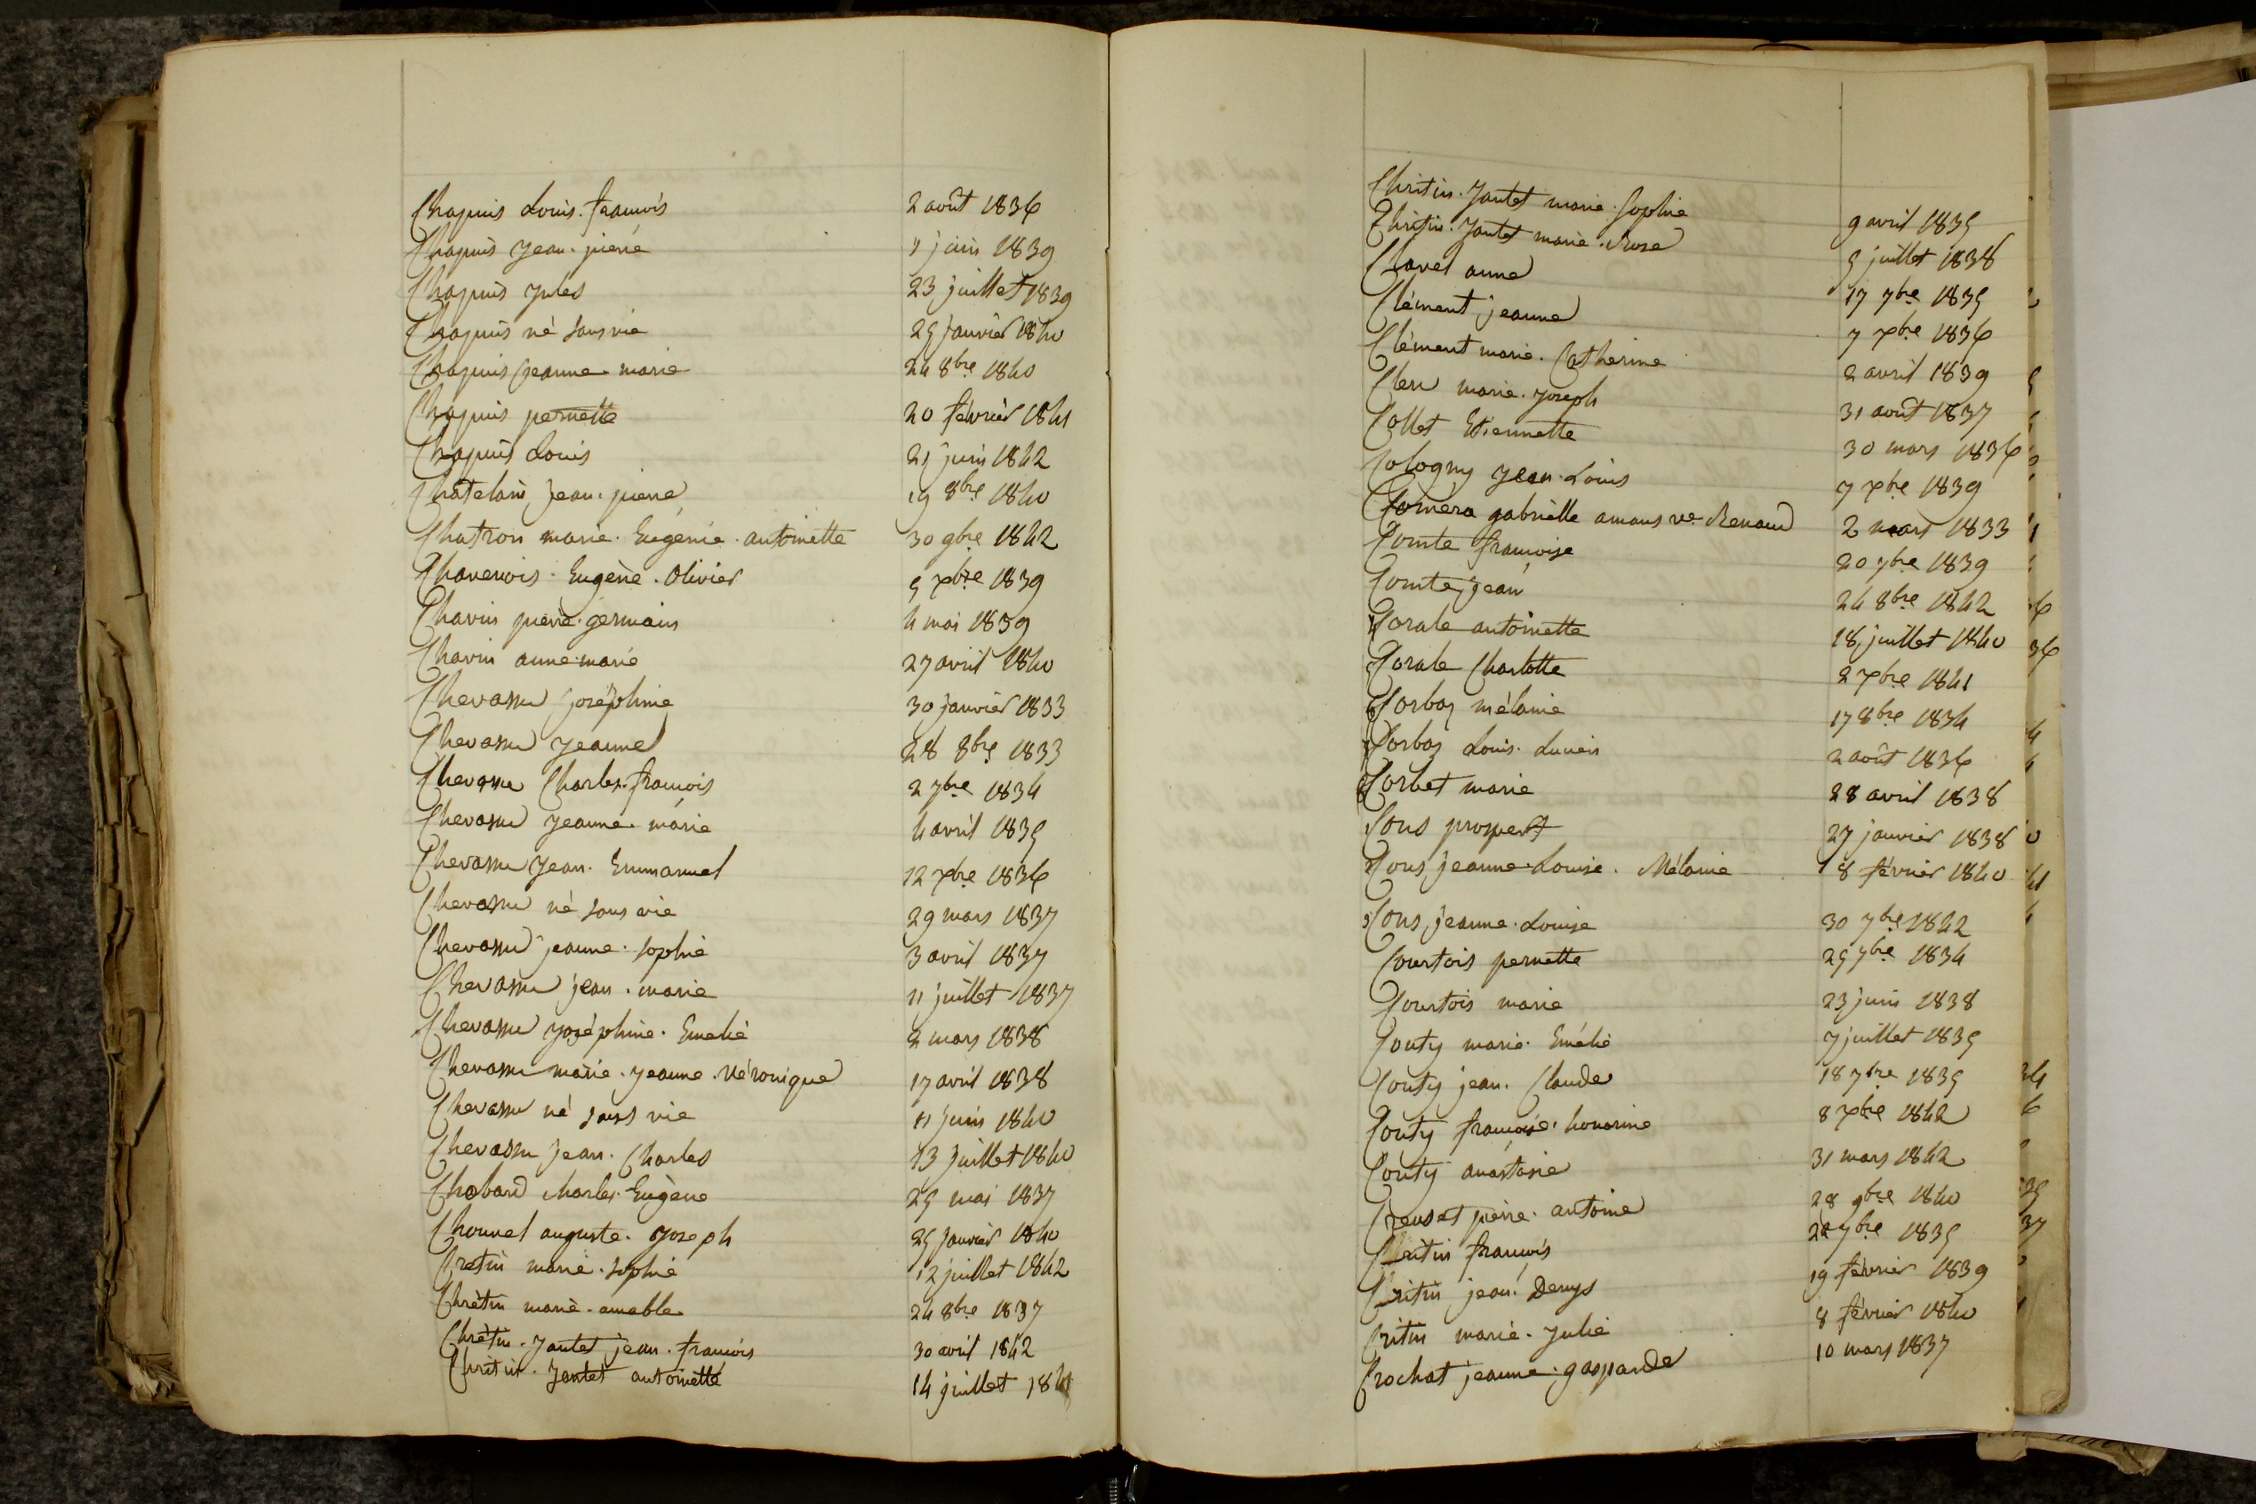 Chapuis Louis. françois 2 août 1836
Chapuis Jean. pierre 11 juin 1839
Chapuis Jules 23 juillet 1839
Chapuis né sans vie 25 janvier 1840
Chapuis Jeanne marie 24 8bre 1840
Chapuis pernette 20 février 1841
Chapuis Louis 21 juin 1842
Chatelain Jean. pierre 19 8bre 1840
Chatron marie. Eugénie. antoinette 30 9bre 1842
Chavenois. Eugène. Olivier 5 xbre 1839
Chavin pierre. germain 4 mai 1839
Chavin anne. marie 27 avril 1840
Chevassu Joséphine 30 janvier 1833
Chevassu Jeanne 28 8bre 1833
Chevassu Charles. françois 2 7bre 1834
Chevassu Jeanne. marie 4 avril 1835
Chevassu Jean. Emmanuel 12 xbre 1836
Chevassu né sans vie 29 mars 1837
Chevassu jeanne. sophie 3 avril 1837
Chevassu jean. marie 11 juillet 1837
Chevassu Joséphine. Emélie 2 mars 1838
Chevassu marie. Jeanne. Véronique 17 avril 1838
Chevassu né sans vie 11 juin 1840
Chevassu Jean. Charles 13 juillet 1840
Chobard charles. Eugène 25 mai 1837
Chouvel auguste. Joseph 25 janvier 1840
Cretin marie. sophie 12 juillet 1842
Chrétin marie. amable 24 8bre 1837
Chrétin. Jantet jean. francois 30 avril 1842
Chritin. Jantet antoinette 14 juillet 1841
Chritin. Jantet marie. Sophie 9 avril 1835
Chritin. Jantet marie. Rose 5 juillet 1838
Clavel anne 17 7bre 1835
Clément jeanne 7 xbre 1836
Clément marie. Catherine 2 avril 1839
Clerc marie. Joseph 31 août 1837
Collet Etiennette 30 mars 1836
Cologny Jean. Louis 7 xbre 1839
Coméra gabrielle amans ve. Renaud 2 mars 1833
Comte françoise 20 7bre 1839
Comte Jean 24 8bre 1842
Corale antoinette 18 juillet 1840
Corale Charlotte 2 xbre 1841
Corbas mélanie 17 8bre 1834
Corbas Louis. Lucien 2 août 1836
Corbet marie 28 avril 1838
Cous prosper 27 janvier 1838
Cous Jeanne. Louise. Mélanie 18 février 1840
Cous Jeanne. Louise 30 7bre 1842
Courtois pernette 25 7bre 1834
Courtois marie 23 juin 1838
Couty marie. Emélie 7 juillet 1835
Couty jean. Claude 18 7bre 1835
Couty françoise. honorine 8 xbre 1842
Couty anastasie 31 mars 1842
Creuset pierre. antoine 28 9bre 1840
Critin françois 22 7bre 1835
Critin jean. Denys 19 février 1839
Critin marie. Julie 8 février 1840
Crochat jeanne. gasparde 10 mars 1837